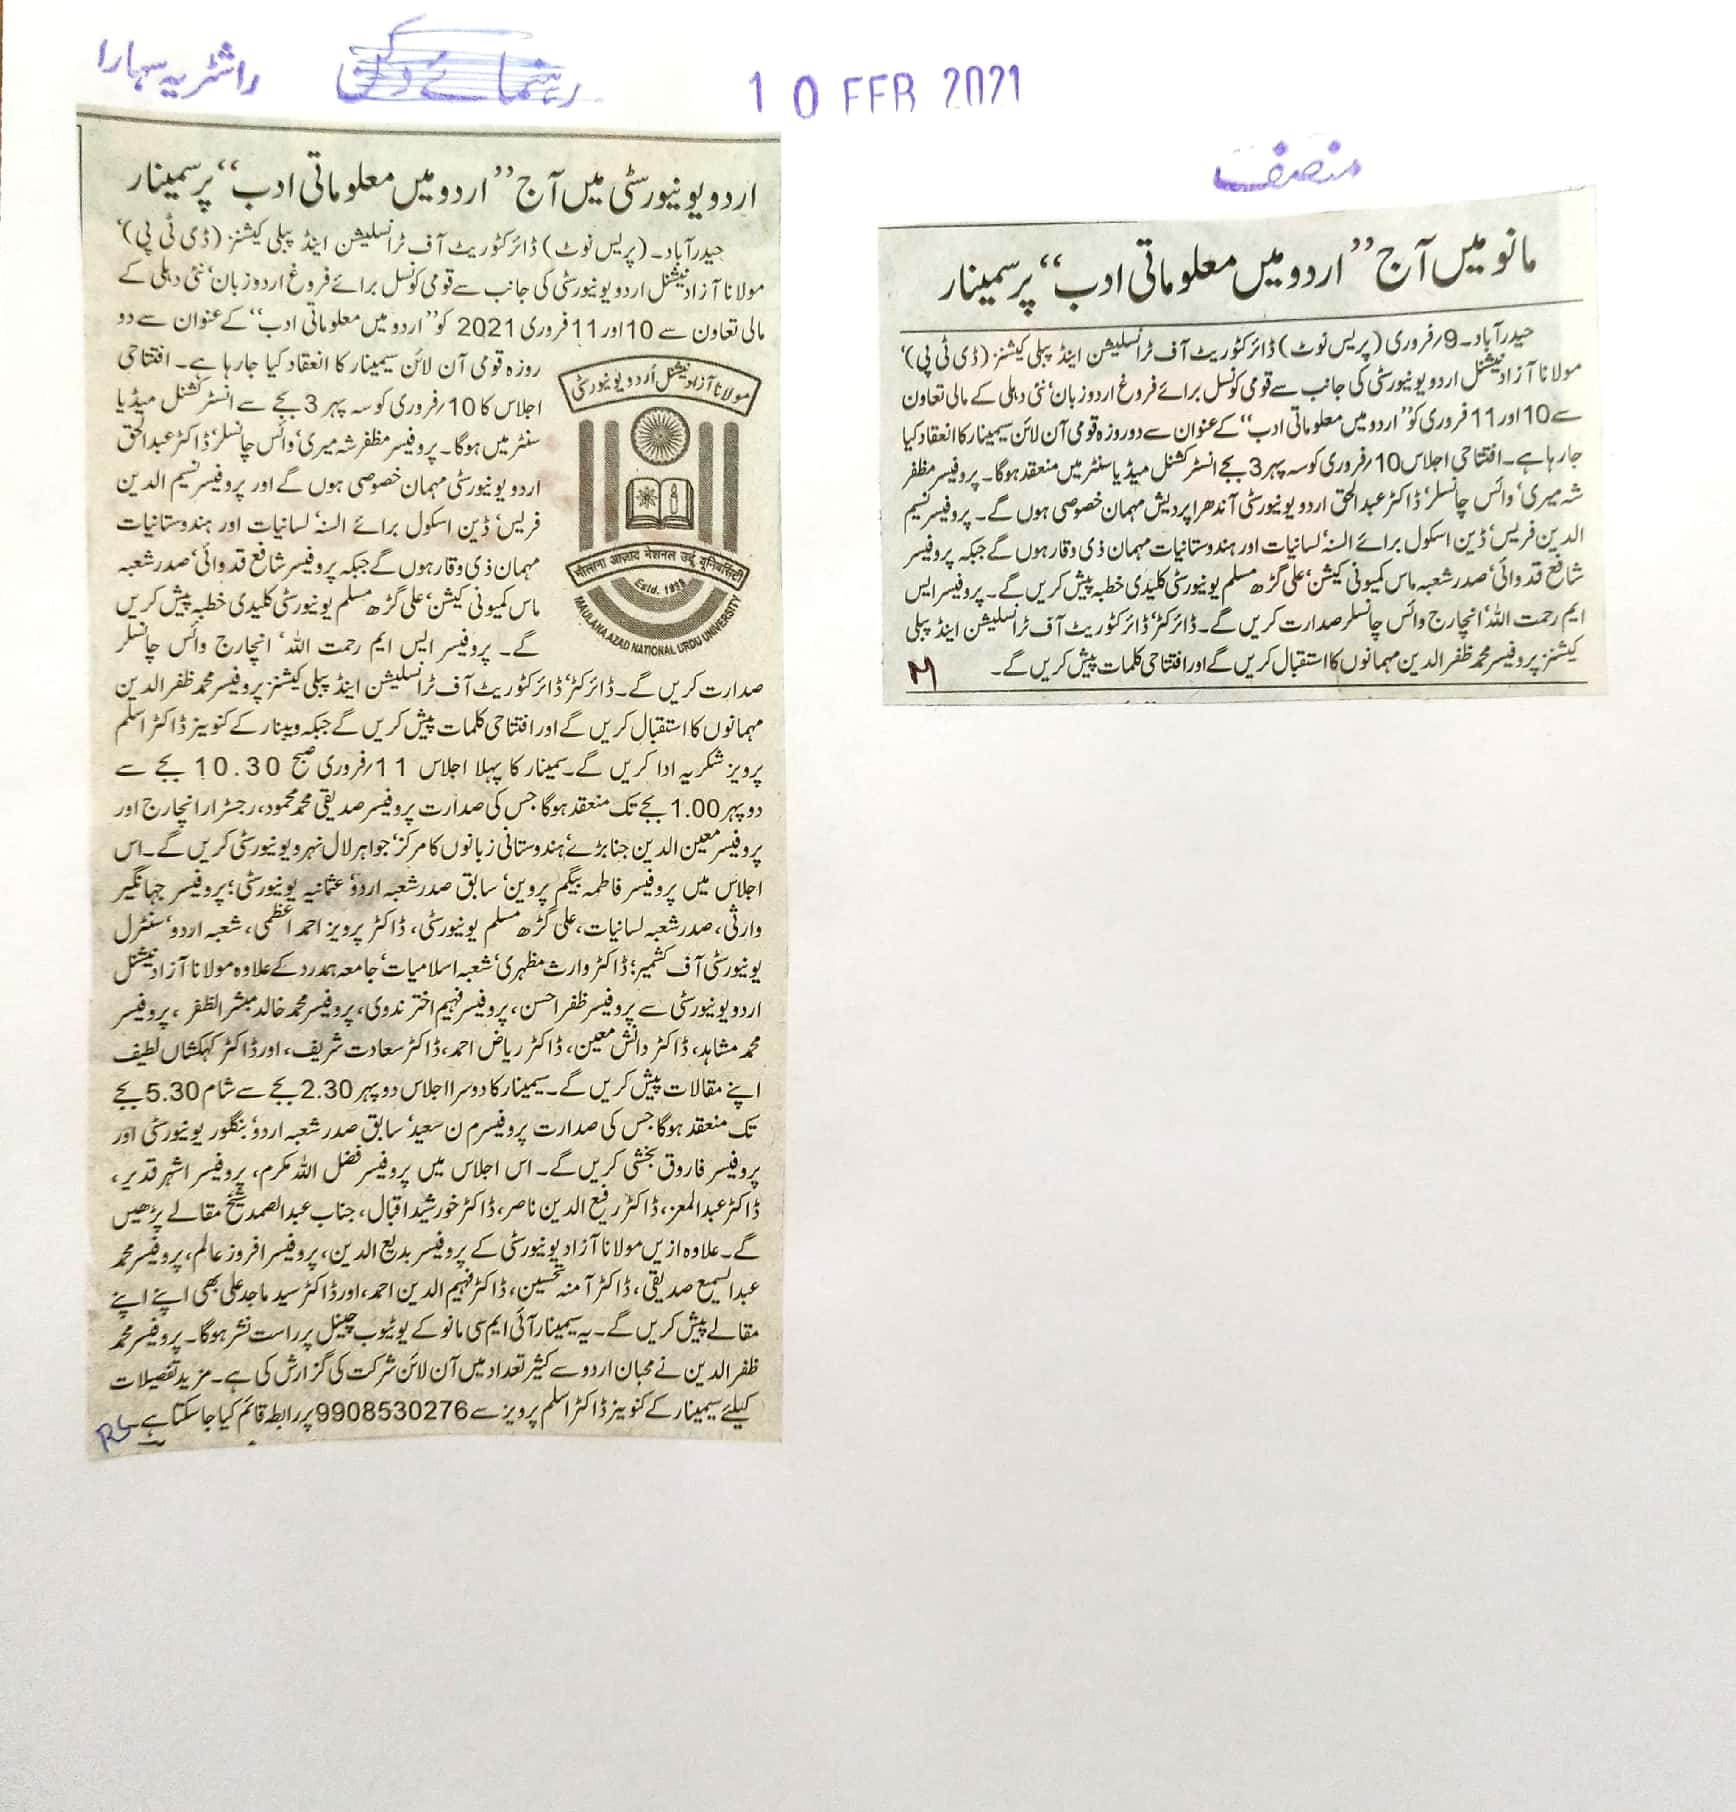 راشٹریہ سہارا
رہنمائے دکن
10 FEB 2021
منصف
اردو یونیورسٹی میں آج ’’اردو میں معلوماتی ادب‘‘ پر سمینار
حیدرآباد۔ (پریس نوٹ) ڈائرکٹوریٹ آف ٹرانسلیشن اینڈ پبلی کیشنز (ڈی ٹی پی)‘
مولانا آزاد نیشنل اردو یونیورسٹی کی جانب سے قومی کونسل برائے فروغ اردو زبان‘ نئی دہلی کے
مالی تعاون سے 10 اور 11 فروری 2021 کو ’’اردو میں معلوماتی ادب‘‘ کے عنوان سے دو
روزہ قومی آن لائن سیمینار کا انعقاد کیا جارہا ہے۔ افتتاحی
اجلاس کا 10؍فروری کو سہ پہر 3 بجے سے انسٹرکشنل میڈیا
سنٹر میں ہوگا۔ پروفیسر مظفر شہ میری‘ وائس چانسلر‘ ڈاکٹر عبدالحق
اردو یونیورسٹی مہمان خصوصی ہوں گے اور پروفیسر نسیم الدین
فریس‘ ڈین اسکول برائے السنہ‘ لسانیات اور ہندوستانیات
مہمان ذی وقار ہوں گے جبکہ پروفیسر شافع قدوائی‘ صدر شعبہ
ماس کمیونی کیشن‘ علی گڑھ مسلم یونیورسٹی کلیدی خطبہ پیش کریں
گے۔ پروفیسر ایس ایم رحمت اللہ‘ انچارج وائس چانسلر
صدارت کریں گے۔ ڈائرکٹر‘ ڈائرکٹوریٹ آف ٹرانسلیشن اینڈ پبلی کیشنز پروفیسر محمد ظفرالدین
مہمانوں کا استقبال کریں گے اور افتتاحی کلمات پیش کریں گے جبکہ ویبینار کے کنوینر ڈاکٹر اسلم
پرویز شکریہ ادا کریں گے۔ سمینار کا پہلا اجلاس 11؍فروری صبح 10.30 بجے سے
دوپہر 1.00 بجے تک منعقد ہوگا جس کی صدارت پروفیسر صدیقی محمد محمود، رجسٹرار انچارج اور
پروفیسر معین الدین جینابڑے‘ ہندوستانی زبانوں کا مرکز‘ جواہر لال نہرو یونیورسٹی کریں گے۔ اس
اجلاس میں پروفیسر فاطمہ بیگم پروین‘ سابق صدر شعبہ اردو‘ عثمانیہ یونیورسٹی؛ پروفیسر جہانگیر
وارثی، صدر شعبہ لسانیات، علی گڑھ مسلم یونیورسٹی، ڈاکٹر پرویز احمد اعظمی، شعبہ اردو‘ سنٹرل
یونیورسٹی آف کشمیر؛ ڈاکٹر وارث مظہری‘ شعبہ اسلامیات‘ جامعہ ہمدرد کے علاوہ مولانا آزاد نیشنل
اردو یونیورسٹی سے پروفیسر ظفر احسن، پروفیسر فہیم اختر ندوی، پروفیسر محمد خالد مبشر الظفر، پروفیسر
محمد مشاہد، ڈاکٹر دانش معین، ڈاکٹر ریاض احمد، ڈاکٹر سعادت شریف، اور ڈاکٹر کہکشاں لطیف
اپنے مقالات پیش کریں گے۔ سیمینار کا دوسرا اجلاس دوپہر 2.30 بجے سے شام 5.30 بجے
تک منعقد ہوگا جس کی صدارت پروفیسر م ن سعید‘ سابق صدر شعبہ اردو‘ بنگلور یونیورسٹی اور
پروفیسر فاروق بخشی کریں گے۔ اس اجلاس میں پروفیسر فضل اللہ مکرم، پروفیسر اشہر قدیر،
ڈاکٹر عبدالمعز، ڈاکٹر رفیع الدین ناصر، ڈاکٹر خورشید اقبال، جناب عبدالصمد شیخ مقالے پڑھیں
گے۔ علاوہ ازیں مولانا آزاد یونیورسٹی کے پروفیسر بدیع الدین، پروفیسر افروز عالم، پروفیسر محمد
عبدالسمیع صدیقی، ڈاکٹر آمنہ تحسین، ڈاکٹر فہیم الدین احمد، اور ڈاکٹر سید ماجد علی بھی اپنے اپنے
مقالے پیش کریں گے۔ یہ سیمینار آئی ایم سی مانو کے یوٹیوب چینل پر راست نشر ہوگا۔ پروفیسر محمد
ظفرالدین نے محبان اردو سے کثیر تعداد میں آن لائن شرکت کی گزارش کی ہے۔ مزید تفصیلات
کیلئے سیمینار کے کنوینر ڈاکٹر اسلم پرویز سے 9908530276 پر رابطہ قائم کیا جاسکتا ہے۔
RS
مولانا آزاد نیشنل اُردو یونیورسٹی
मौलाना आज़ाद नेशनल उर्दू यूनिवर्सिटी
Estd. 1998
MAULANA AZAD NATIONAL URDU UNIVERSITY
مانو میں آج ’’اردو میں معلوماتی ادب‘‘ پر سمینار
حیدرآباد۔ 9؍فروری (پریس نوٹ) ڈائرکٹوریٹ آف ٹرانسلیشن اینڈ پبلی کیشنز (ڈی ٹی پی)‘
مولانا آزاد نیشنل اردو یونیورسٹی کی جانب سے قومی کونسل برائے فروغ اردو زبان‘ نئی دہلی کے مالی تعاون
سے 10 اور 11 فروری کو ’’اردو میں معلوماتی ادب‘‘ کے عنوان سے دو روزہ قومی آن لائن سیمینار کا انعقاد کیا
جارہا ہے۔ افتتاحی اجلاس 10؍فروری کو سہ پہر 3 بجے انسٹرکشنل میڈیا سنٹر میں منعقد ہوگا۔ پروفیسر مظفر
شہ میری‘ وائس چانسلر‘ ڈاکٹر عبدالحق اردو یونیورسٹی آندھرا پردیش مہمان خصوصی ہوں گے۔ پروفیسر نسیم
الدین فریس‘ ڈین اسکول برائے السنہ‘ لسانیات اور ہندوستانیات مہمان ذی وقار ہوں گے جبکہ پروفیسر
شافع قدوائی‘ صدر شعبہ ماس کمیونی کیشن‘ علی گڑھ مسلم یونیورسٹی کلیدی خطبہ پیش کریں گے۔ پروفیسر ایس
ایم رحمت اللہ‘ انچارج وائس چانسلر صدارت کریں گے۔ ڈائرکٹر‘ ڈائرکٹوریٹ آف ٹرانسلیشن اینڈ پبلی
کیشنز پروفیسر محمد ظفرالدین مہمانوں کا استقبال کریں گے اور افتتاحی کلمات پیش کریں گے۔
M